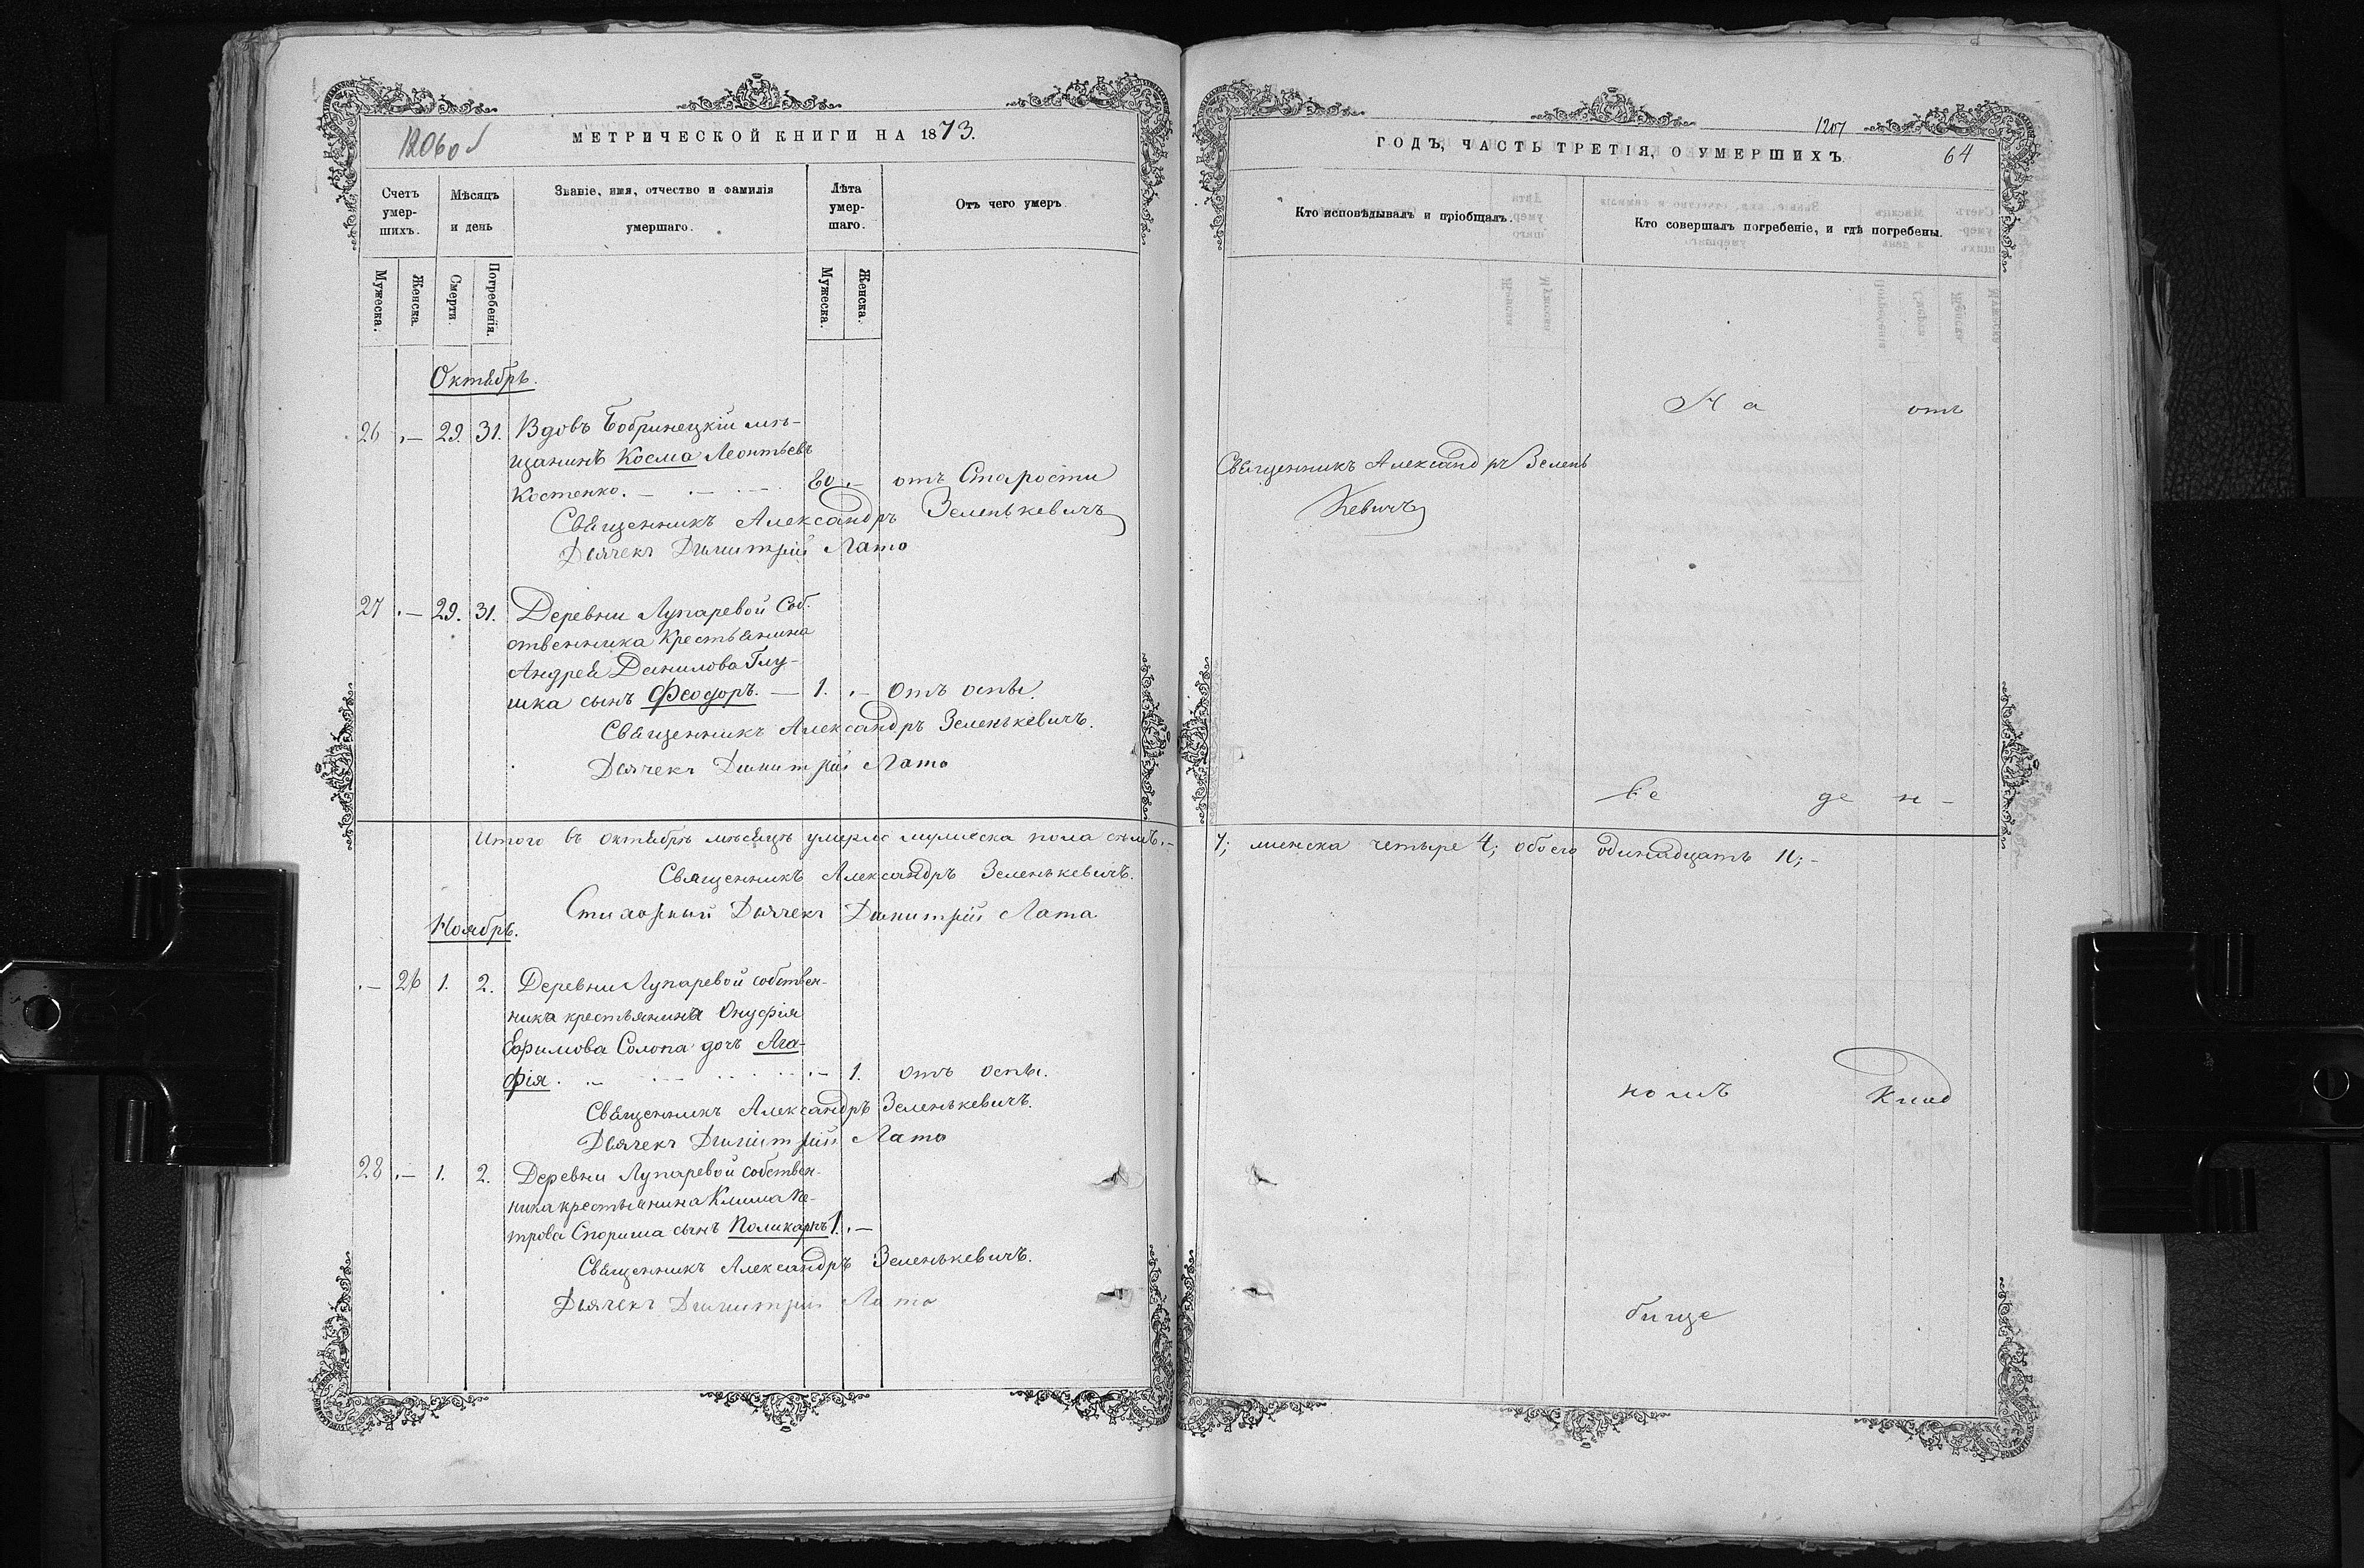 1206 об
МЕТРИЧЕСКОЙ КНИГИ НА 1873.
Счетъ умер-шихъ.
Мѣсяцъ и день
Званіе, имя, отчество и фамилія умершаго.
Лѣта умер-шаго.
Отъ чего умеръ.
Мужеска.
Женска.
Смерти.
Погребенія.
Мужеска.
Женска.
Октябрь.
26 .— 29. 31. Вдовъ Бобринецкій мѣ-
щанинъ Косма Леонтьевъ
Костенко. — 80 .— отъ Старости
Священникъ Александръ Зеленькевичъ
Дьячекъ Димитрій Лата
27 .— 29. 31. Деревни Лупаревой Соб.
ственника Крестьянина
Андрея Данилова Глу-
шка сынъ Феодоръ. — 1. .— Отъ оспы.
Священникъ Александръ Зеленькевичъ.
Дьячекъ Димитрій Лата
Итого въ октябрѣ мѣсяцѣ умерло мужеска пола семь.—
Священникъ Александръ Зеленькевичъ.
Стихарный Дьячекъ Димитрій Лата
Ноябрь.
.— 26 1. 2. Деревни Лупаревой собствен-
ника крестьянина Онуфрія
Ефимова Солопа дочь Ага-
фія. .— 1. отъ оспы.
Священникъ Александръ Зеленькевичъ.
Дьячекъ Димитрій Лата
28 .— 1. 2. Деревни Лупаревой собствен-
ника крестьянина Клима Пе-
трова Спориша сынъ Поликарпъ 1. .—
Священникъ Александръ Зеленькевичъ.
Дьячекъ Димитрій Лата
1207
ГОДЪ, ЧАСТЬ ТРЕТІЯ, О УМЕРШИХЪ.
64
Кто исповѣдывалъ и пріобщалъ.
Кто совершалъ погребеніе, и гдѣ погребены.
На от
Священникъ Александръ Зелень
кевичъ
ве ден-
7; женска четыре 4; обоего одинадцать 11;-
номъ клад
бище